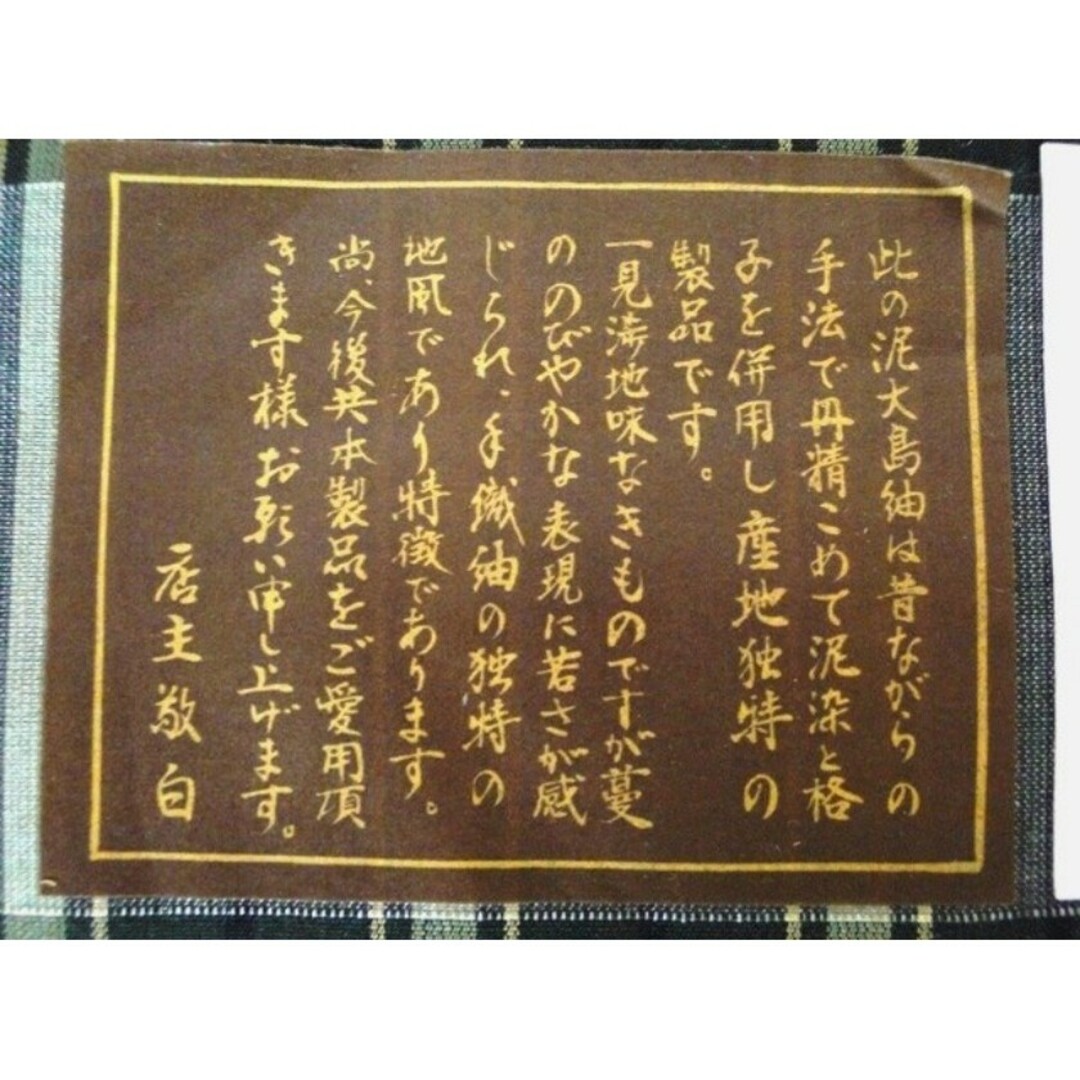 此の泥大島紬は昔ながらの
手法で丹精こめて泥染と格
子を併用し産地独特の
製品です。
一見渋地味なきものですが蔓
ののびやかな表現に若さが感
じられ、手織紬の独特の
地風であり特徴であります。
尚、今後共本製品をご愛用頂
きます様お願い申し上げます。
店主敬白